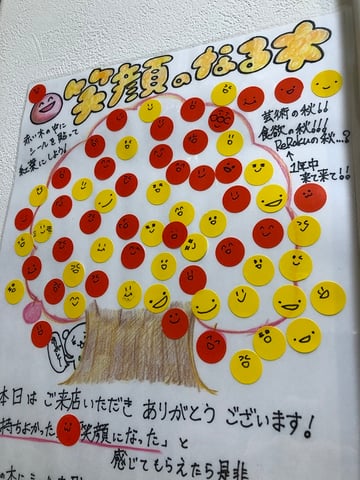 笑顔のなる木
赤い木の中に
シールを貼って
紅葉にしよう!
芸術の秋!!
食欲の秋!!!
ReRakuの秋...?
↑
1年中
来て来て!!
本日は ご来店いただき ありがとう ございます!
持ちよかった 笑顔になった」と
感じてもらえたら是非